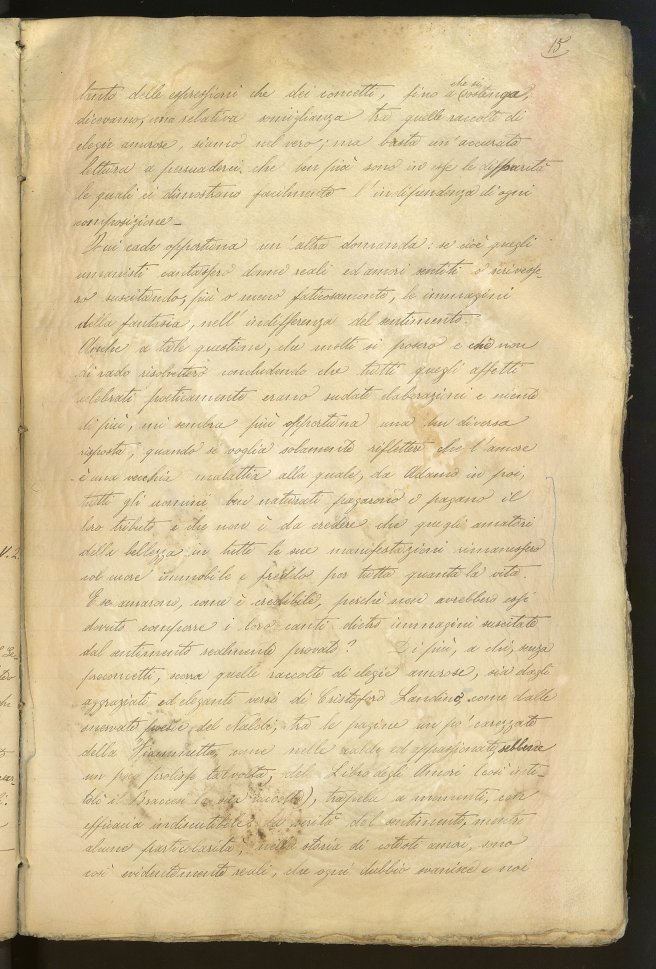 15
tanto delle espressioni che dei concetti, fino a che si sostenga,
dicevamo, una relativa somiglianza tra quelle raccolte di
elegie amorose, siamo nel vero; ma basta un'accurata
lettura a persuaderci che ben più sono in esse le disparità
le quali ci dimostrano facilmente l'indipendenza di ogni
composizione.
Qui cade opportuna un'altra domanda: se cioè quegli
umanisti cantassero donne reali ed amori sentiti o scrivesse-
ro suscitando, più o meno faticosamente, le immagini
della fantasia, nell'indifferenza del sentimento.
Anche a tale questione, che molti si posero e che non
di rado risolvettero concludendo che tutti quegli affetti
celebrati poeticamente erano sudate elaborazioni e niente
di più, mi sembra più opportuna una ben diversa
risposta, quando si voglia solamente riflettere che l'amore
è una vecchia malattia alla quale, da Adamo in poi,
tutti gli uomini ben naturati pagarono e pagano il
loro tributo e che non è da credere che quegli amatori
della bellezza in tutte le sue manifestazioni rimanessero
col cuore immobile e freddo per tutta quanta la vita.
E se amarono, come è credibile, perchè non avrebbero essi
dovuto comporre i loro canti dietro immagini suscitate
dal sentimento realmente provato? Di più, a chi, senza
preconcetti, scorra quelle raccolte di elegie amorose, sia dagli
aggraziati ed eleganti versi di Cristoforo Landino, come dalle
poesie del Naldi, tra le pagine un po' carezzate
della Fiammetta, come nelle calde ed appassionate, sebbene
un poco prolisse talvolta, del Libro degli Amori (così inti-
tolò il Braccesi la sua raccolta), trapela a momenti, con
efficacia indiscutibile, la verità del sentimento, mentre
alcune particolarità, nella storia di cotesti amori, sono
così evidentemente reali, che ogni dubbio svanisce e noi